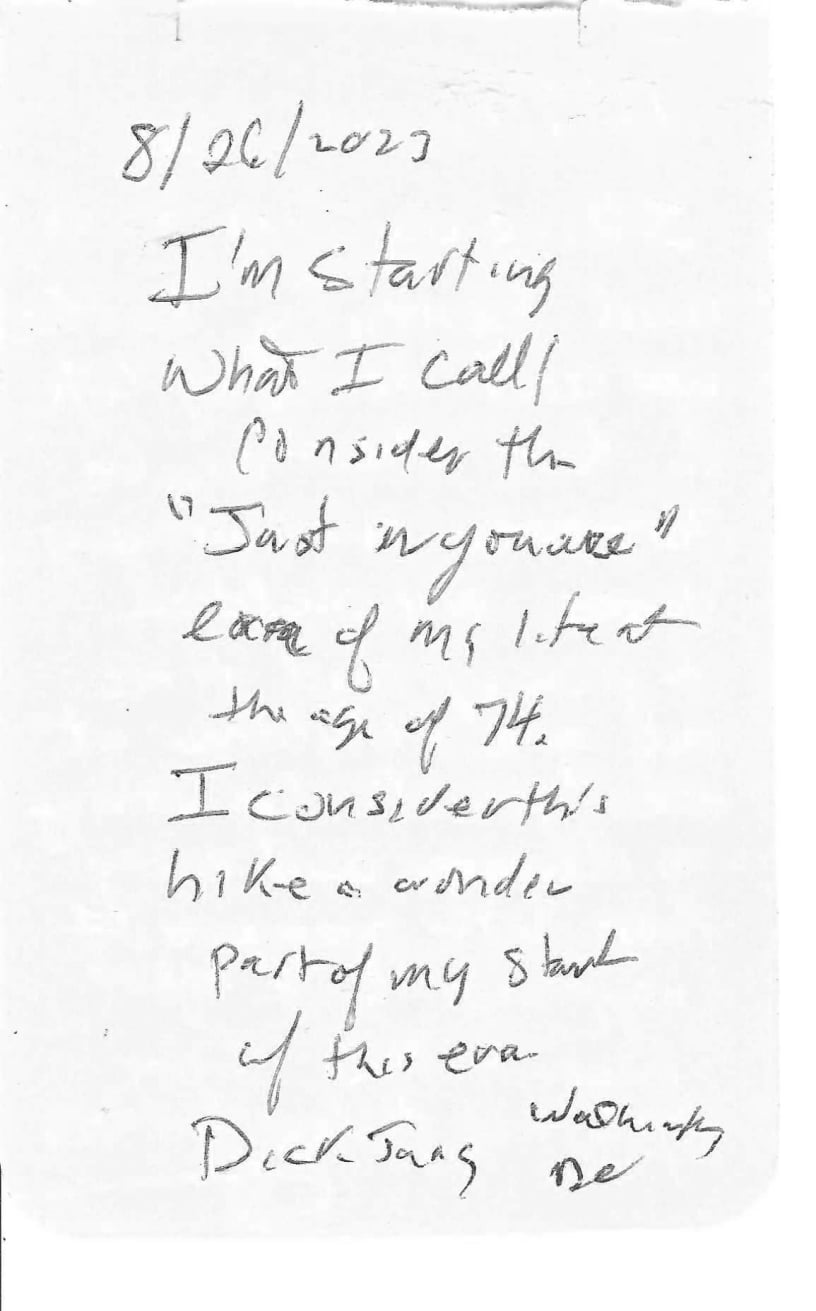 8/26/2023
I'm starting
what I call/
consider the
"Just in you are"
era of my life at
the age of 74.
I consider this
hike a wonder
part of my start
of this era.
Dick
Washington
DC